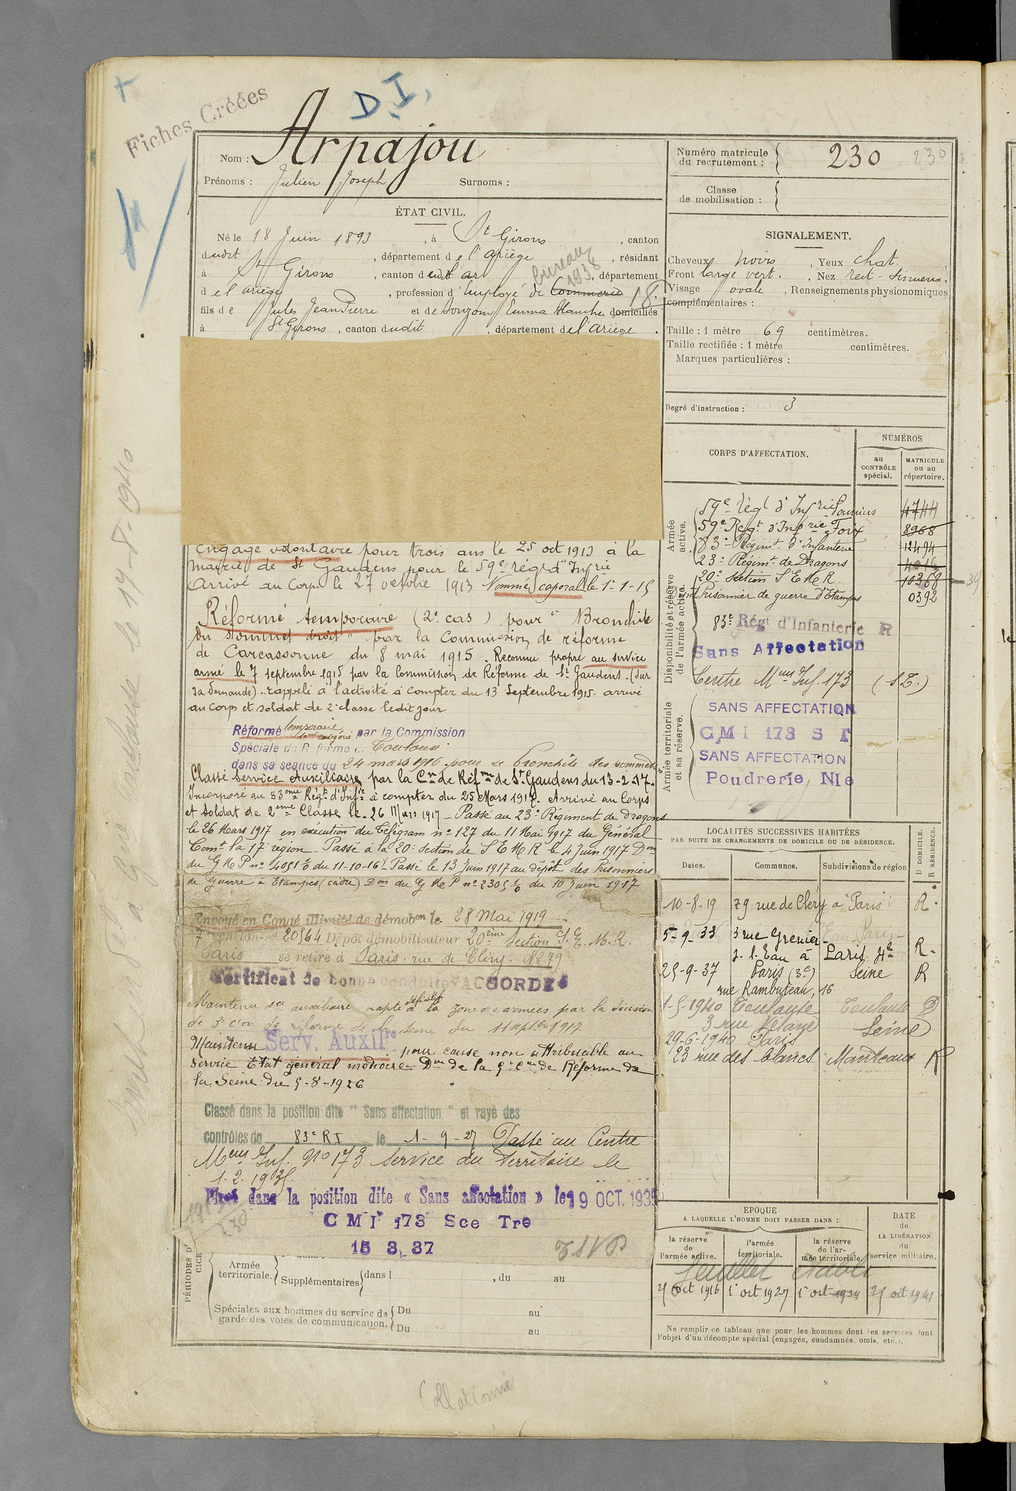 Fiches Créées
D.I.
Nom : Arpajou
Prénoms : Julien Joseph Surnoms :
ÉTAT CIVIL.
Né le 18 Juin 1893, à St Girons, canton
dudit, département de l'ariège, résidant
à St Girons, canton dudit, département
bureau
1938
d el ariège, profession d'employé de Commerce
fils de Jules Jean Pierre et de Emma Blanche, domiciliés
à St Girons, canton dudit, département del ariège.
Engagé volontaire pour trois ans le 25 oct 1913 à la
mairie de St Gaudens pour le 59e régt d'Infrie
Arrivé au Corps le 27 octobre 1913 Nommé caporal le 1-1-15
Réformé temporaire (2e cas) pour "Bronchite
du sommet droit" par la Commission de réforme
de Carcassonne du 8 mai 1915. Reconnu propre au service
armé le 7 septembre 1915 par la Commission de Réforme de St Gaudens. (Sur
sa demande) - rappelé à l'activité à compter du 13 Septembre 1915. arrivé
au corps et soldat de 2e classe ledit jour
Réformé temporaire par la Commission
Spéciale de Réforme de Toulouse
dans sa séance du 24 mars 1916 pour Bronchite des sommets
Classé Service Auxiliaire par la Con de Réfme de St Gaudens du 13-2-17.
Incorporé au 83eme Régt d'Infie à compter du 25 Mars 1917. Arrivé au Corps
et Soldat de 2eme Classe le 26 Mars 1917 - Passé au 23e Régiment de Dragons
le 26 Mars 1917 en exécution du Téligram no 127 du 11 Mai 1917 du Général
Comt la 17e région - Passé à la 20e section de S E M R le 4 Juin 1917 Don
du G M P no 40513 du 11-10-16. Passé le 13 Juin 1917 au dépôt des Prisonniers
de Guerre à Etampes (cadre) Don du G M P no 2305 du 10 Juin 1917
Envoyé en Congé illimité de démobon le 28 Mai 1919
20564 Dépôt démobilisateur 20eme Section S. E. M. R.
Paris se retire à Paris. rue de Cléry. No 79
Certificat de bonne conduite ACCORDÉ
Maintenu sce auxiliaire inapte définitif à la zone des armées par la décision
de réforme de la Seine du 11 septbre 1917
Maintenu Serv. Auxilre pour cause non attribuable au
Service Etat général médiocre. Don de la 5e Con de Réforme de
la Seine du 5-8-1926
Classé dans la position dite " Sans affectation " et rayé des
contrôles du 83e RI le 1-9-27 Passé au Centre
Meur Inf. No 173 Service du Territoire le
Placé dans la position dite « Sans affectation » le 19 OCT. 1935
C M I 173 Sce Tre
15 3. 37
TSVP
PÉRIODES D'
CICE
Armée
territoriale. Supplémentaires dans l , du au
Spéciales aux hommes du service de
garde des voies de communication. Du au
Du au
Numéro matricule
du recrutement : 230 230
Classe
de mobilisation :
SIGNALEMENT.
Cheveux noirs, Yeux chat.
Front large vert., Nez rect-
Visage ovale, Renseignements physionomiques
complémentaires :
Taille : 1 mètre 69 centimètres.
Taille rectifiée : 1 mètre centimètres.
Marques particulières :
Degré d'instruction : 3
CORPS D'AFFECTATION.
NUMÉROS
au CONTRÔLE spécial.
MATRICULE ou au répertoire.
Armée active.
Disponibilité et réserve de l'armée active.
Armée territoriale et sa réserve.
59e Régt d'Infrie Pamiers
59e Regt d'Infrie Foix 8968
83e Régimt d'Infanterie
23e Régimt de Dragons
20e Section S E M R 10368
Prisonnier de guerre d'Etampes 0392
83e Régt d'Infanterie R
Sans Affectation
Centre Meur Inf. 173 (S.T.)
SANS AFFECTATION
C M I 173 S T
SANS AFFECTATION
Poudrerie Nle
LOCALITÉS SUCCESSIVES HABITÉES
PAR SUITE DE CHANGEMENTS DE DOMICILE OU DE RÉSIDENCE.
Dates. Communes. Subdivisions de région D DOMICILE. R RÉSIDENCE.
10-8-19 79 rue de Cléry à Paris R.
5-9-33 3 rue Grenier-
s. l. Eau à Paris 4e R.
25-9-37 Paris (3e) Seine R
rue Rambuteau, 16
1-5-1940 Toulouse Toulouse D
29-6-1940 Paris Seine
23 rue des blancs Manteaux R
EPOQUE
A LAQUELLE L'HOMME DOIT PASSER DANS :
DATE
de
LA LIBÉRATION
du
service militaire.
la réserve de l'armée active.
l'armée territoriale.
la réserve de l'armée territoriale.
25 Oct 1916 1er oct 1927 1er oct 1934 25 oct 1941
Ne remplir ce tableau que pour les hommes dont les services font
l'objet d'un décompte spécial (engagés, condamnés, omis, etc.).
Collationné